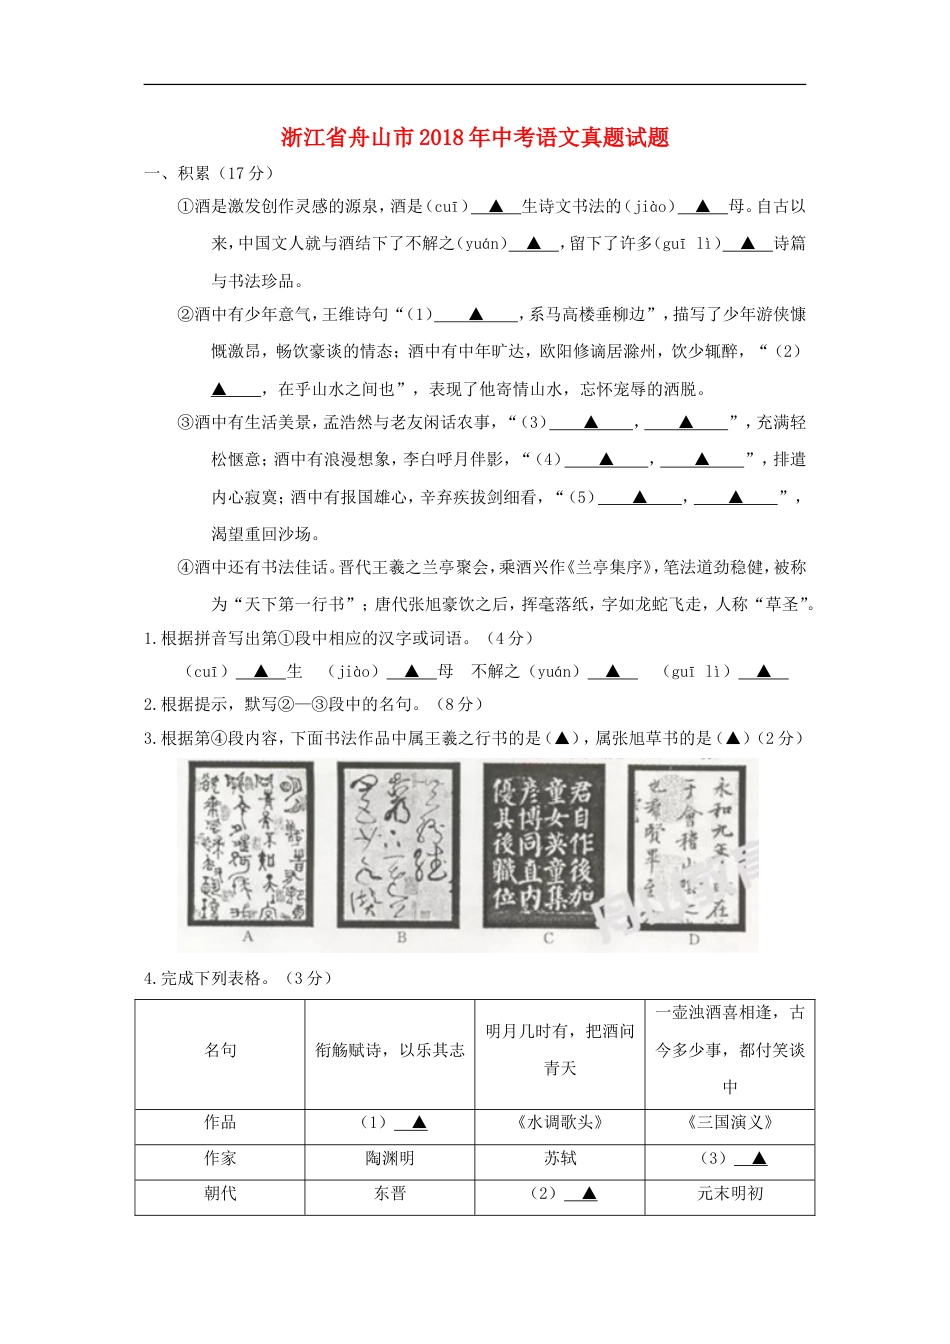 浙江省舟山市 2018 年中考语文真题试题
一、积累（17 分）
①酒是激发创作灵感的源泉，酒是（cuī） ▲ 生诗文书法的（jiào） ▲ 母。自古以
来，中国文人就与酒结下了不解之（yuán） ▲ ，留下了许多（guī lì） ▲ 诗篇
与书法珍品。
②酒中有少年意气，王维诗句“（1） ▲ ，系马高楼垂柳边”，描写了少年游侠慷
慨激昂，畅饮豪谈的情态；酒中有中年旷达，欧阳修谪居滁州，饮少辄醉，“（2）
▲ ，在乎山水之间也”，表现了他寄情山水，忘怀宠辱的洒脱。
③酒中有生活美景，孟浩然与老友闲话农事，“（3） ▲ ， ▲ ”，充满轻
松惬意；酒中有浪漫想象，李白呼月伴影，“（4） ▲ ， ▲ ”，排遣
内心寂寞；酒中有报国雄心，辛弃疾拔剑细看，“（5） ▲ ， ▲ ”，
渴望重回沙场。
④酒中还有书法佳话。晋代王羲之兰亭聚会，乘酒兴作《兰亭集序》，笔法道劲稳健，被称
为“天下第一行书”；唐代张旭豪饮之后，挥毫落纸，字如龙蛇飞走，人称“草圣”。
1.根据拼音写出第①段中相应的汉字或词语。（4 分）
（cuī） ▲ 生 （jiào） ▲ 母 不解之（yuán） ▲ （guī lì） ▲
2.根据提示，默写②—③段中的名句。（8 分）
3.根据第④段内容，下面书法作品中属王羲之行书的是（▲），属张旭草书的是（▲）（2 分）
君自作後加
童女英童集
彦博同直内
優其後職位
永和九
于會稽山
也羣賢畢至
A B C D
4.完成下列表格。（3 分）
名句 衔觞赋诗，以乐其志 明月几时有，把酒问青天 一壶浊酒喜相逢，古今多少事，都付笑谈中
作品 （1） ▲ 《水调歌头》 《三国演义》
作家 陶渊明 苏轼 （3） ▲
朝代 东晋 （2） ▲ 元末明初